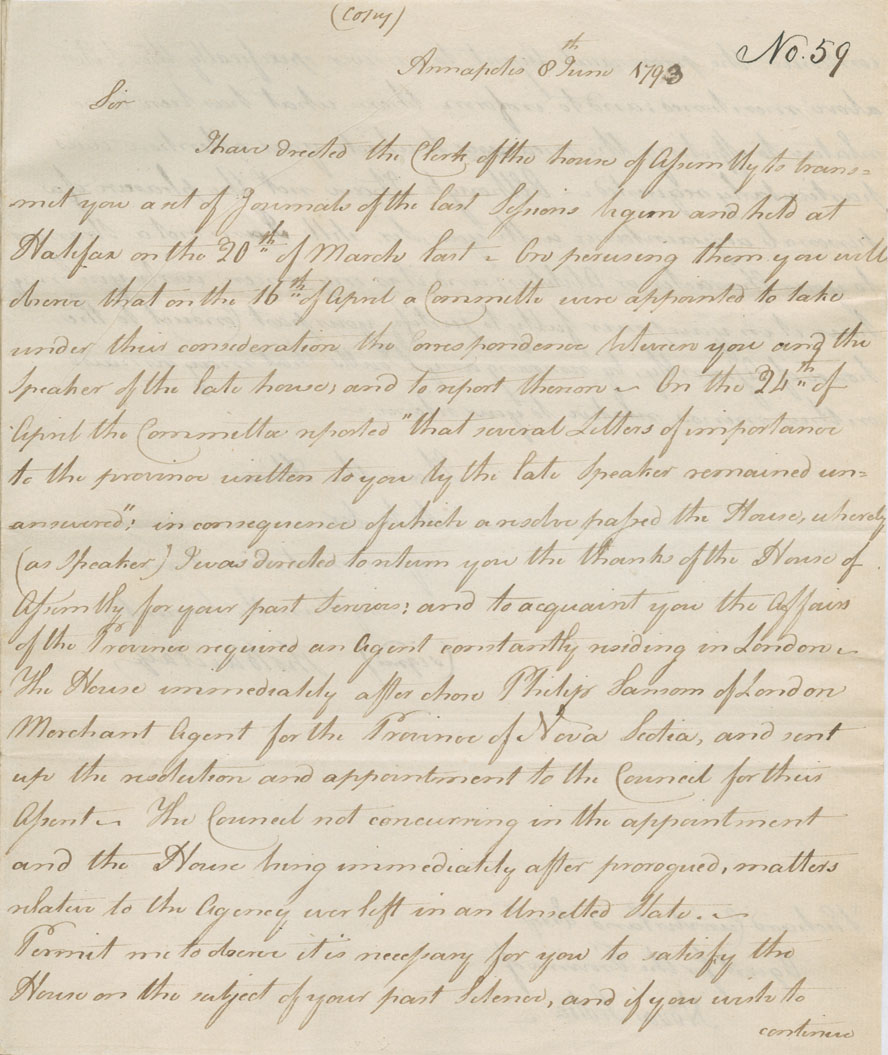 (Copy)
No. 59
Annapolis 8th June 1793
Sir
I have directed the Clerk of the house of Assembly to trans=
mit you a set of Journals of the last Sessions begun and held at
Halifax on the 20th of March last - On perusing them you will
observe that on the 16th of April a Committe were appointed to take
under their consideration the Correspondence between you and the
Speaker of the late house, and to report thereon - On the 24th of
April the Committee reported "that several Letters of importance
to the province written to you by the late Speaker remained un=
answered": in consequence of which a resolve passed the House, whereby
(as Speaker) I was directed to return you the thanks of the House of
Assembly for your past Services: and to acquaint you the Affairs
of the Province required an Agent constantly residing in London -
The House immediately after chose Philip Sansom of London
Merchant Agent for the Province of Nova Scotia, and sent
up the resolution and appointment to the Council for their
Assent - The Council not concurring in the appointment
and the House being immediately after prorogued, matters
relative to the Agency were left in an Unsettled State. -
Permit me to observe it is necessary for you to satisfy the
House on the subject of your past Silence, and if you wish to
continue